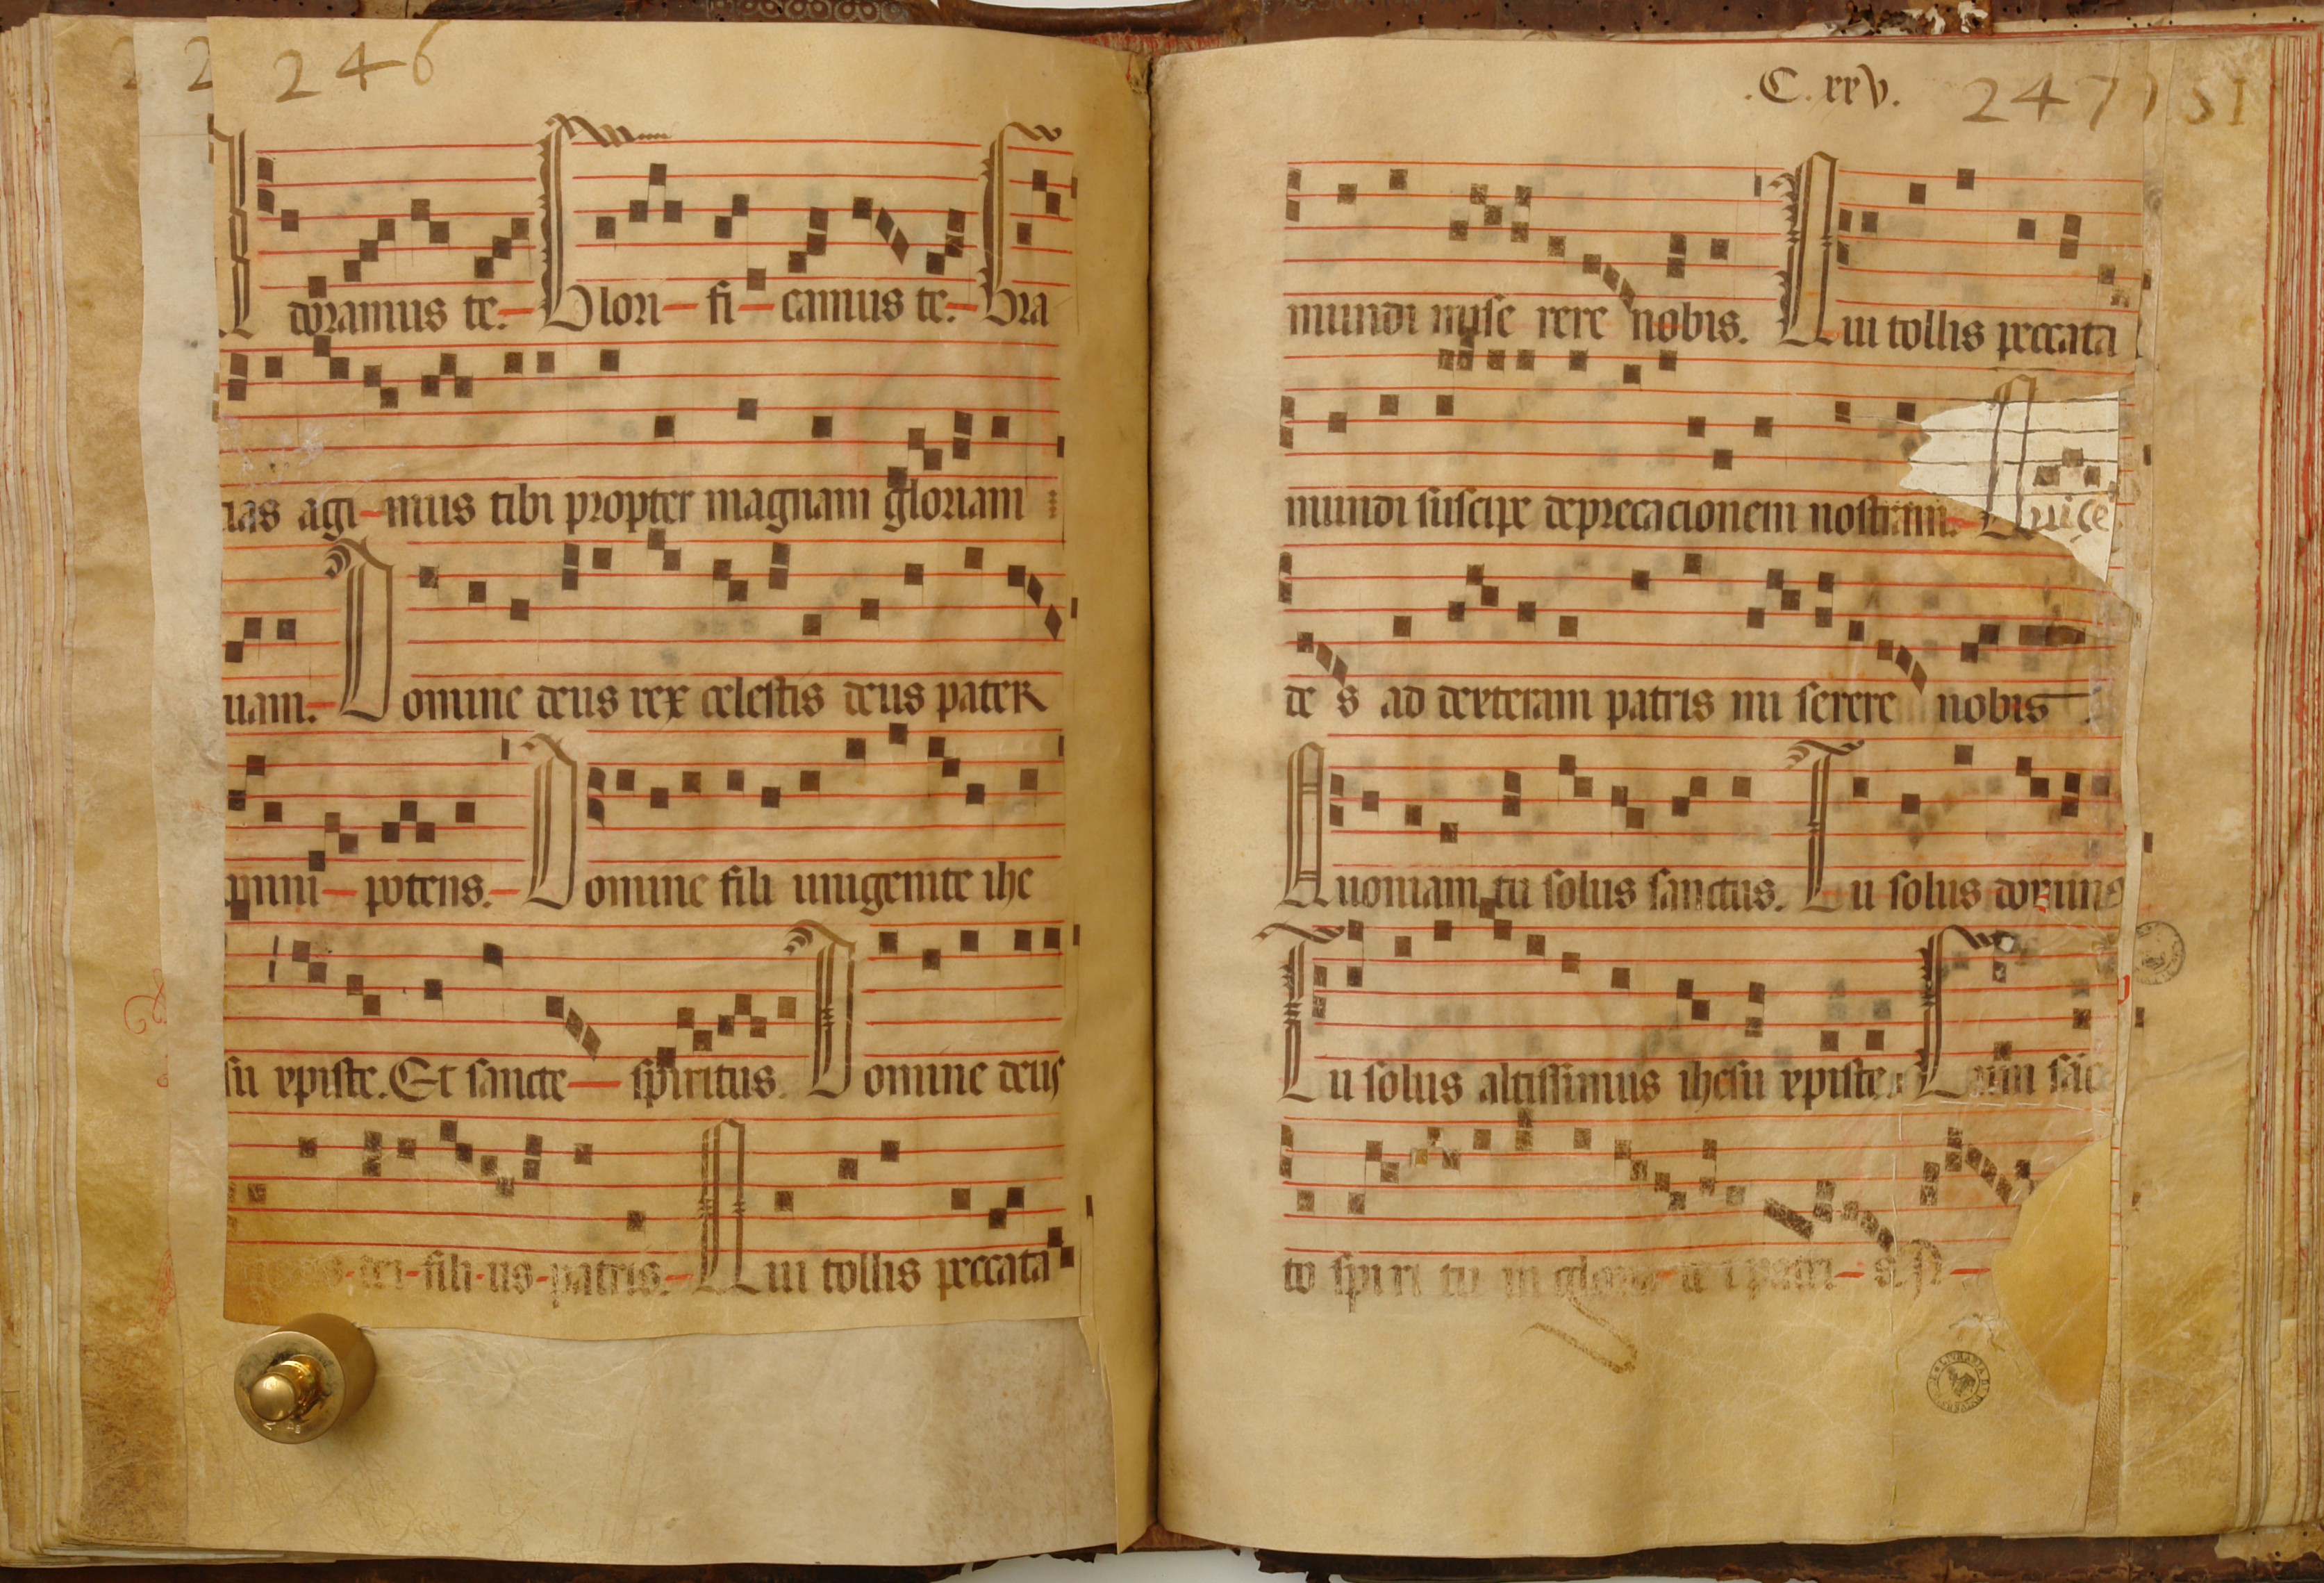 246
Adoramus te. Glori-fi-camus te. Gra
cias agi-mus tibi propter magnam gloriam
tuam. Domine deus rex celestis deus pater
omni-potens. Domine fili unigenite ihe
su xpiste. Et sancte spiritus. Domine deus
dei-fili-us-patris. Qui tollis peccata
.C.xxv. 247
mundi mise rere nobis. Qui tollis peccata
mundi suscipe deprecacionem nostram. Qui se
de s ad dexteram patris mi serere nobis.
Quoniam tu solus sanctus. Tu solus dominus
Tu solus altissimus ihesu xpiste. Cum sāc
to spiri tu in gloria de i patri-s.